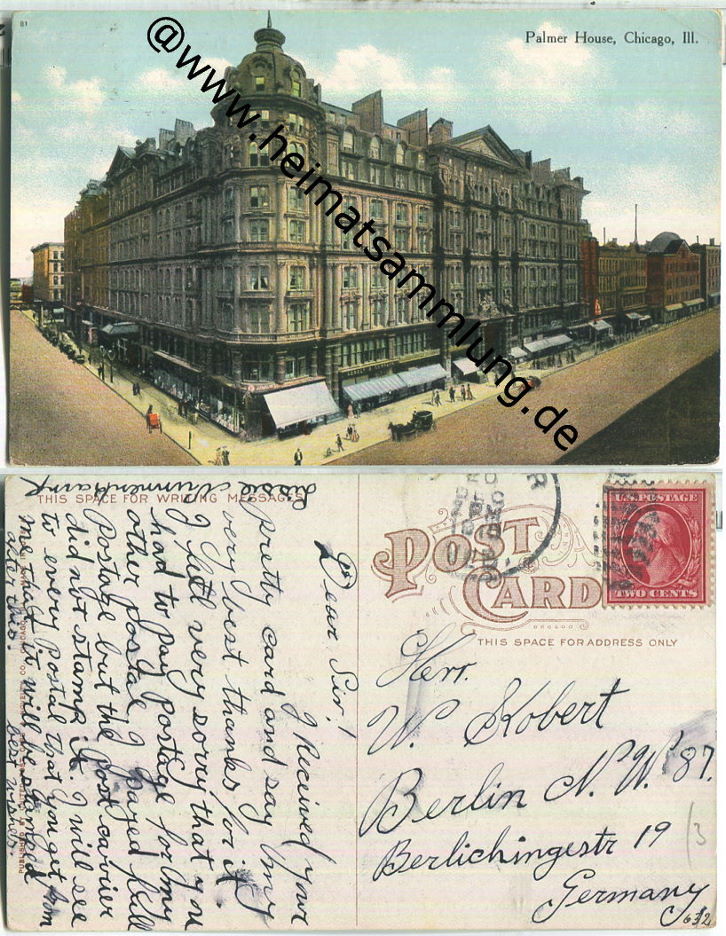 81
Palmer House, Chicago, Ill.
@www.heimatsammlung.de
THIS SPACE FOR WRITING MESSAGES
Dear Sir!
I Received your
pretty card and say my
very best thanks for it
I feel very sorry that you
had to pay postage for my
other postal, I payed full
Postage but the Post carrier
did not stamp it. I will see
to every postal that you get from
me that it will be stamped
after this.
best wishes.
POST CARD
THIS SPACE FOR ADDRESS ONLY
U.S. POSTAGE
TWO CENTS
Herr.
W. Kobert
Berlin N.W. 87.
Berlichingestr 19
Germany
3
632